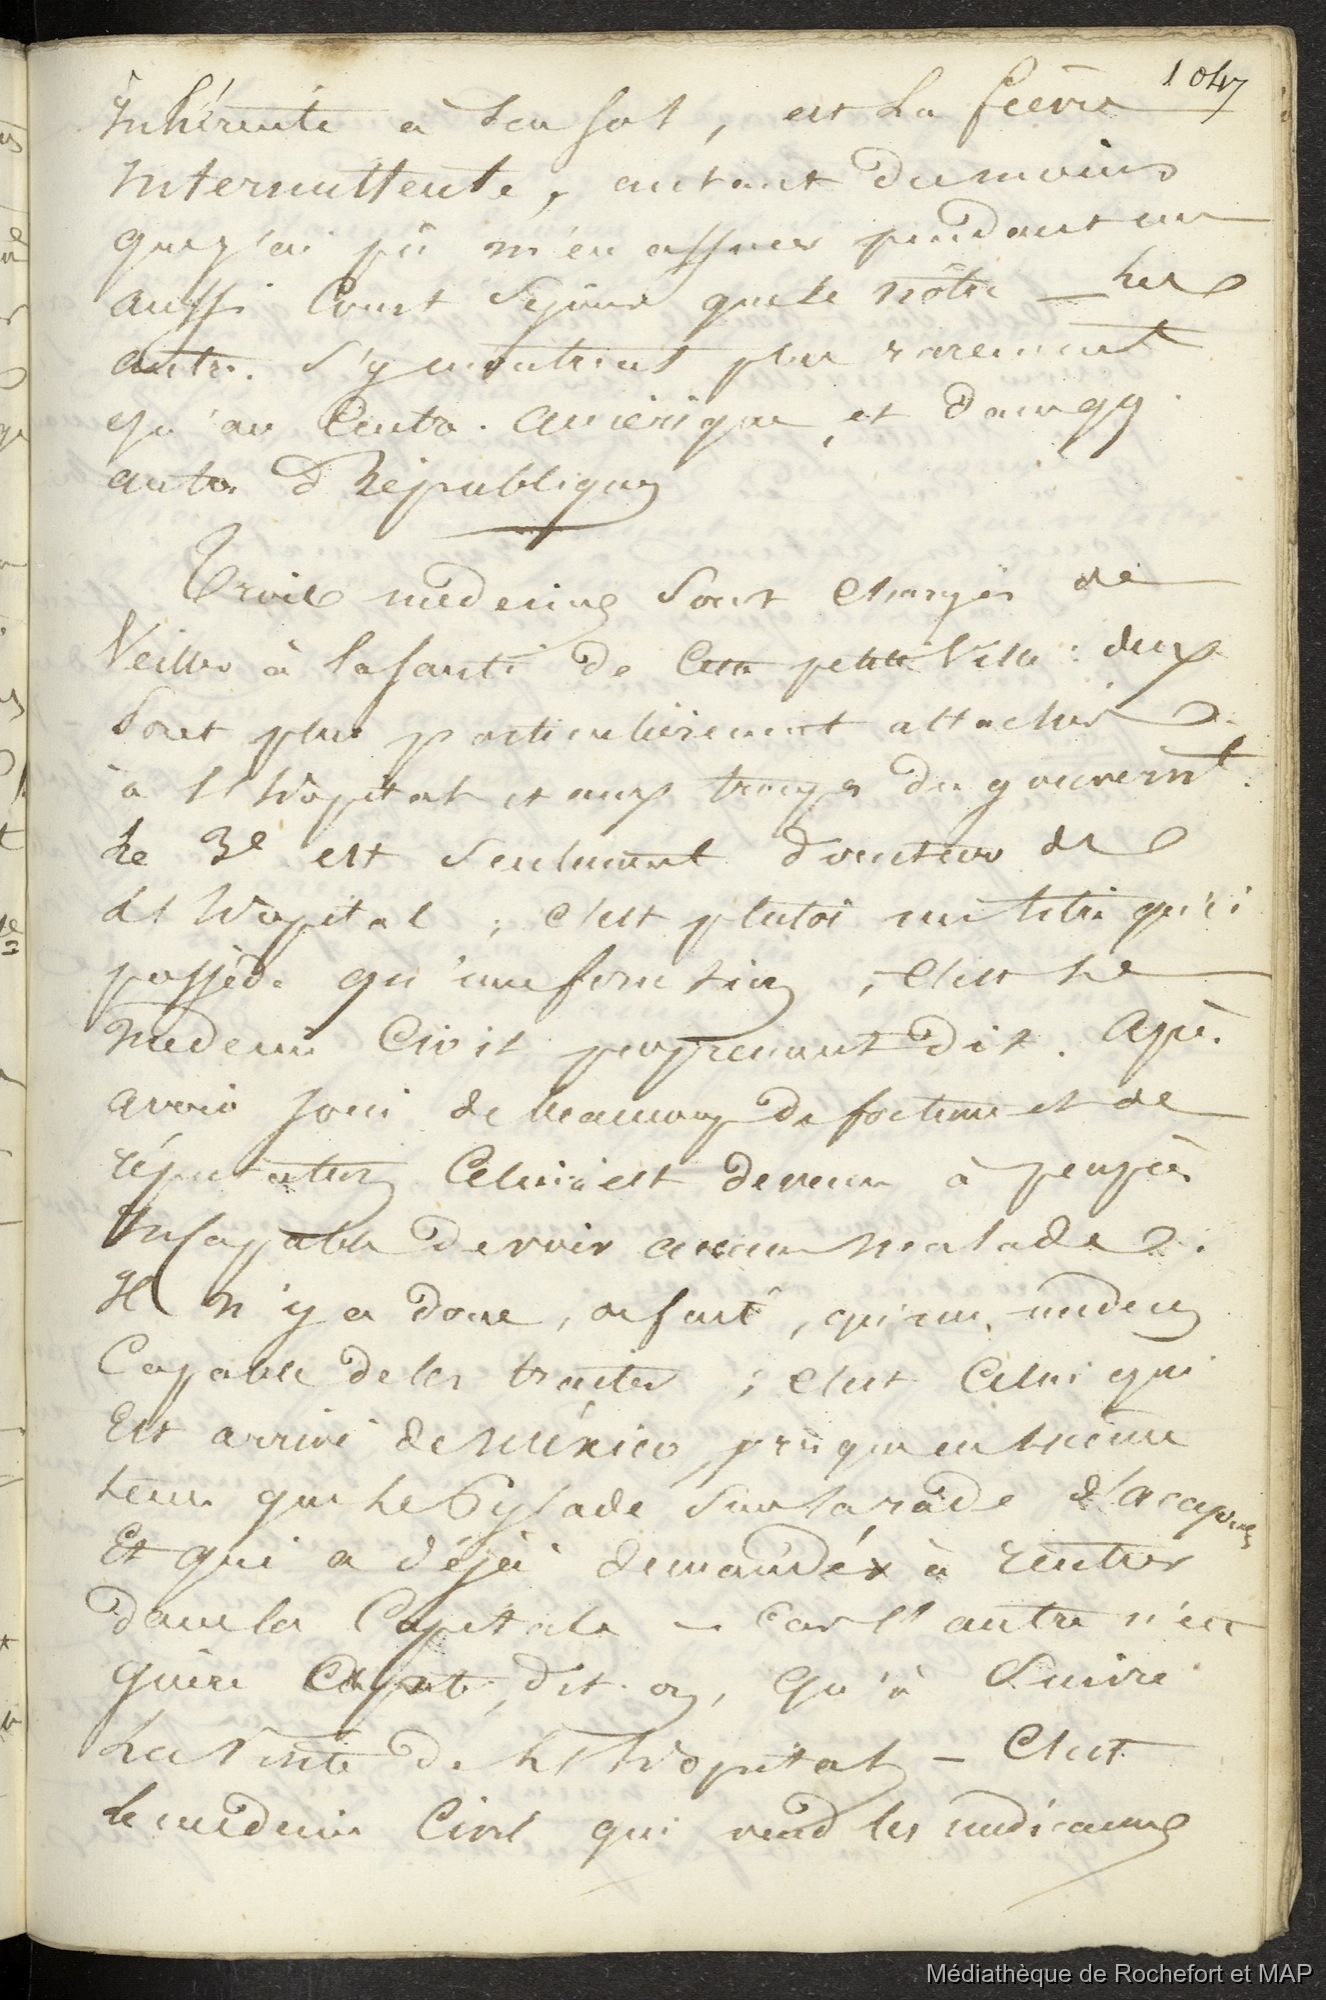 1047
Inhérente à leur sol, est la fièvre
Intermittente, autant du moins
que j'ai pû m'en assurer pendant un
aussi Court Séjour que le nôtre — Les
autres S'y montrent plus rarement
qu'au Centre Amérique, et dans qq.
autres République
Trois médecins Sont Chargés de
Veiller à la santé de Cette petite Ville : deux
Sont plus particulièrement attachés
à l'hôpital et aux troupes du gouvernt.
Le 3e est Seulement directeur de
L'hôpital ; c'est plutôt un titre qu'il
possède qu'une fonction ; C'est le
médecin Civil proprement dit. Après
avoir Joui de beaucoup de fortune et de
réputation Celui-ci est devenu à peu près
Incapable de voir aucun malade.
Il n'y a donc, qu'un médecin
Capable de les traiter ; c'est Celui qui
Est arrivé de México, presque en même
tems que Le Pylade Sur la rade d'acapulco
Et qui a déjà demandé à rentrer
dans la Capitale — Car l'autre n'est
guère dit-on, qu'à Suivre
La Visite de L'hôpital — C'est
le médecin Civil qui vend les médicamens
Médiathèque de Rochefort et MAP